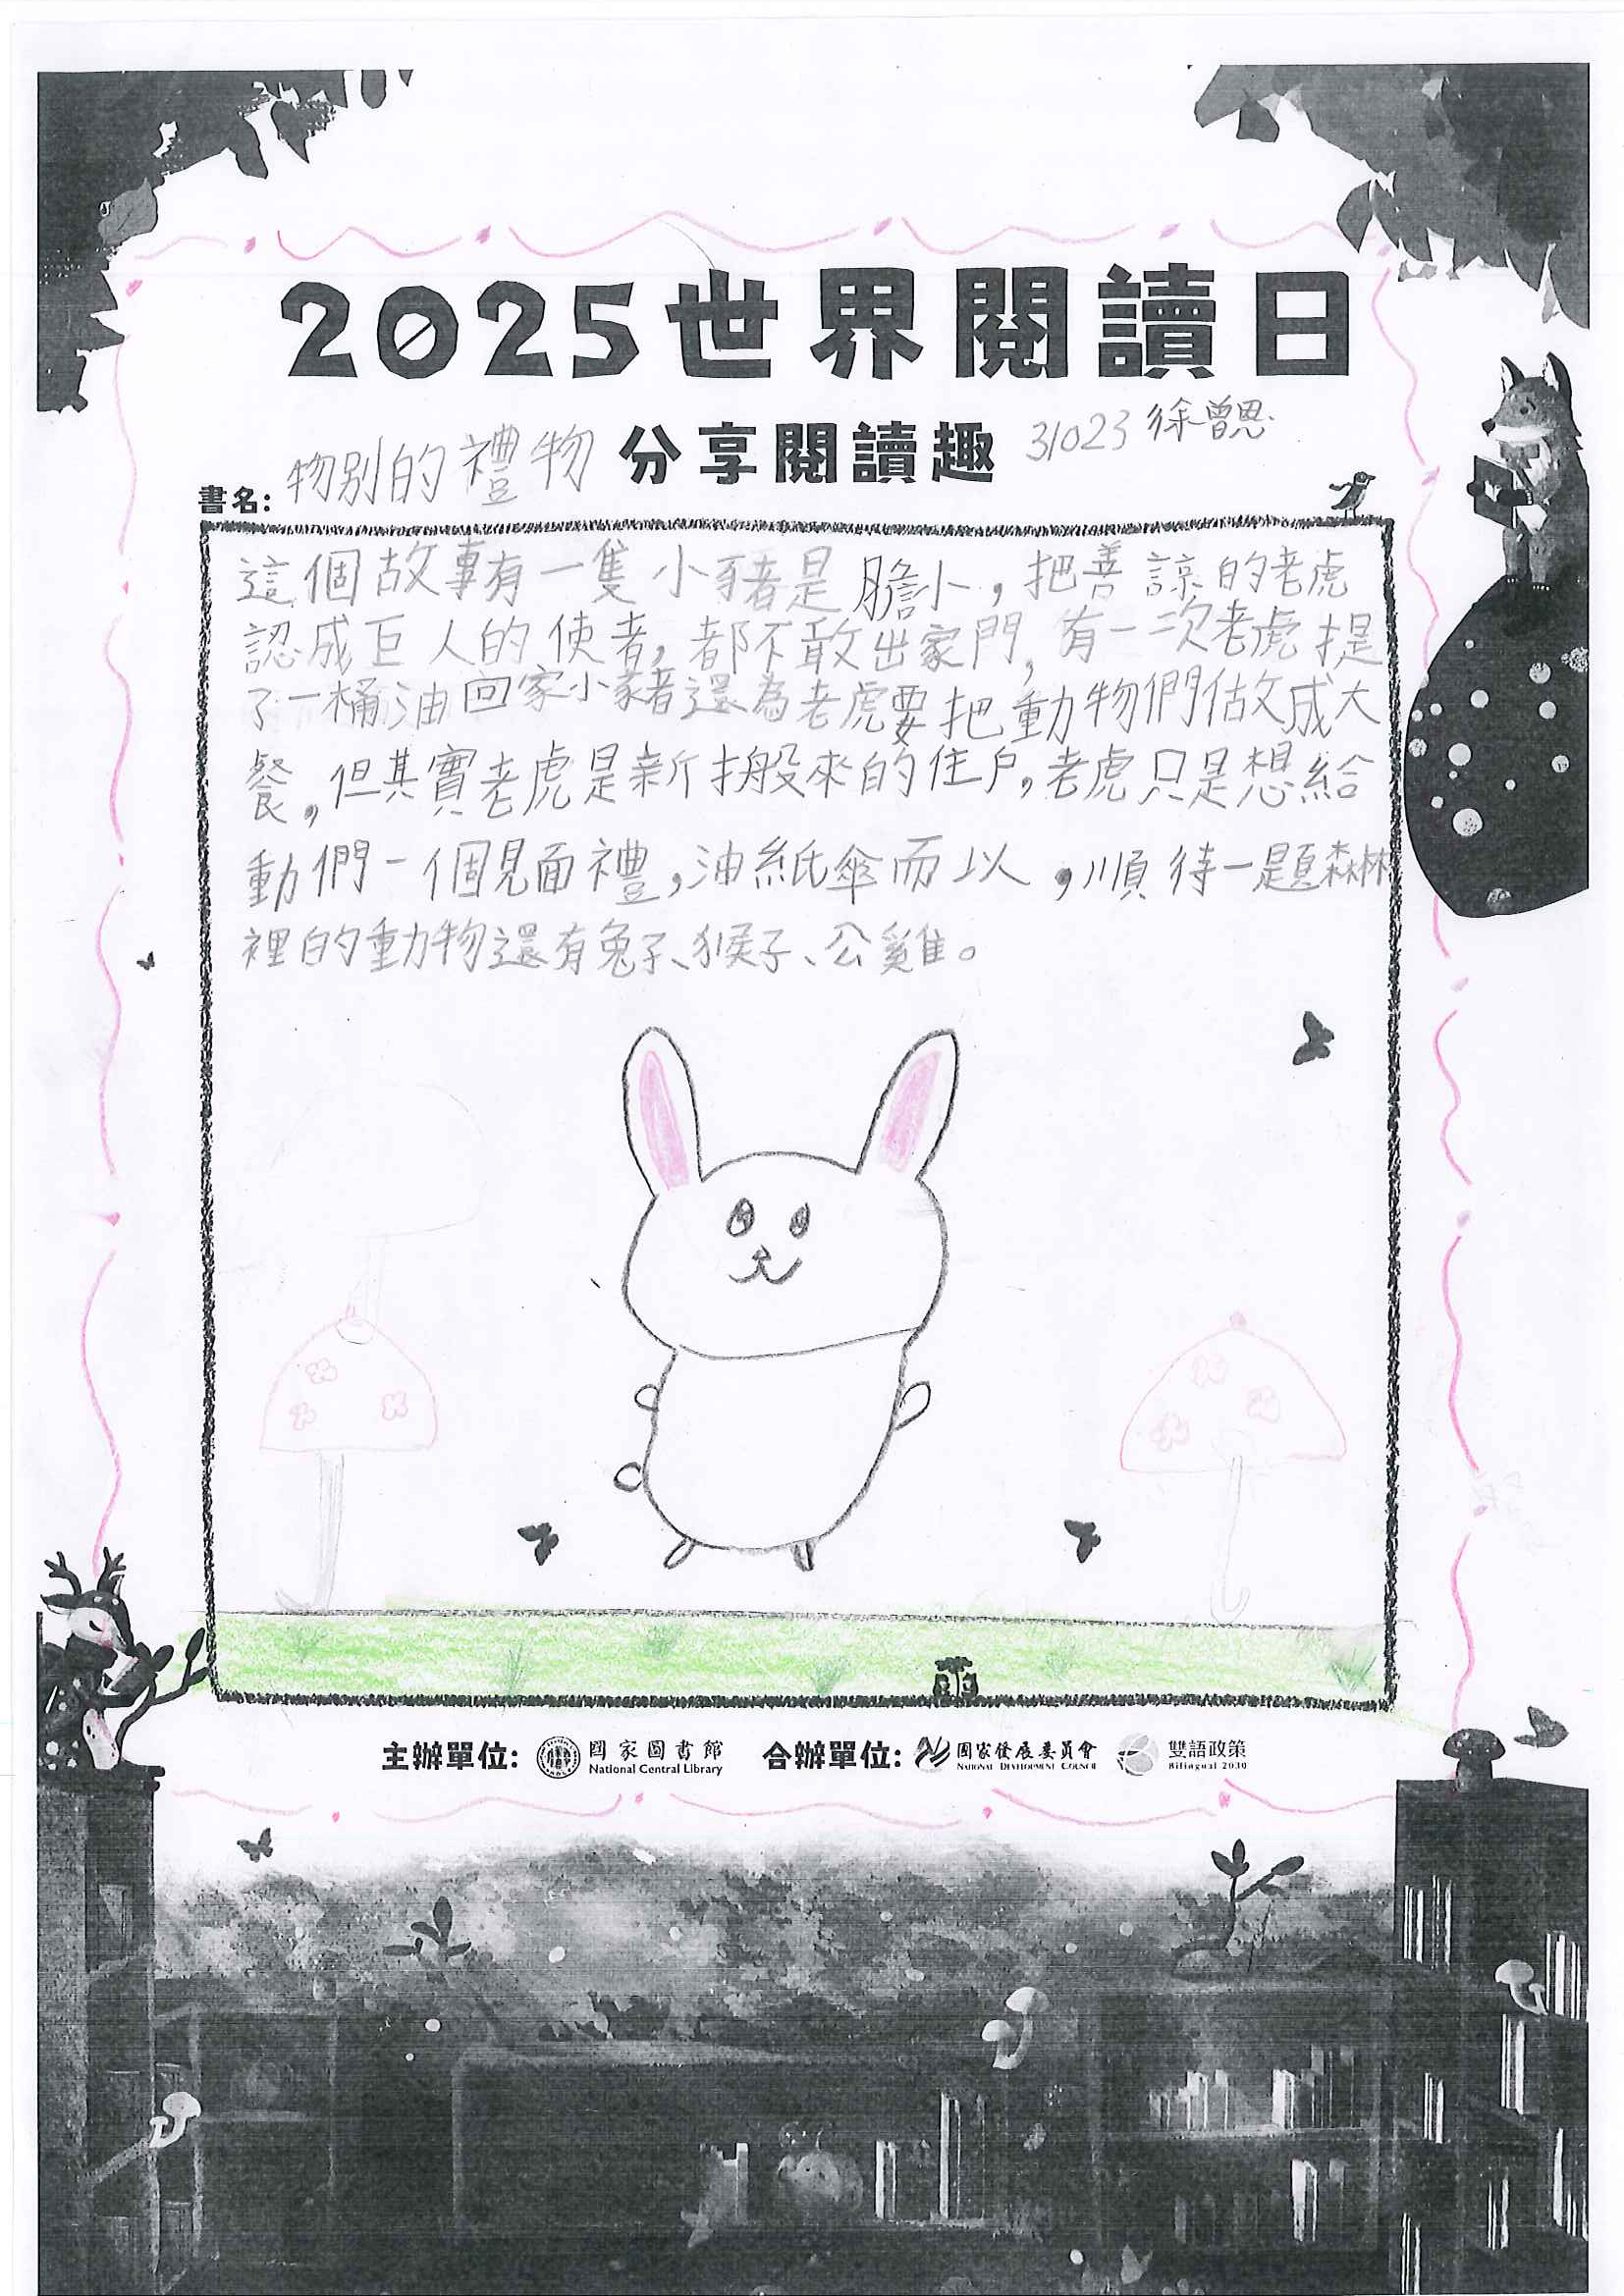 2025世界閱讀日
分享閱讀趣
31023 徐曾恩
書名: 物別的禮物
這個故事有一隻小豬是膽小，把善諒的老虎
認成巨人的使者，都不敢出家門，有一次老虎提
了一桶油回家小豬還為老虎要把動物們做成大
餐，但其實老虎是新搬來的住戶，老虎只是想給
動們一個見面禮，油紙傘而以，順待一題森林
裡的動物還有兔子、猴子、公雞。
主辦單位: 國家圖書館 National Central Library 合辦單位: 國家發展委員會 NATIONAL DEVELOPMENT COUNCIL 雙語政策 Bilingual 2030